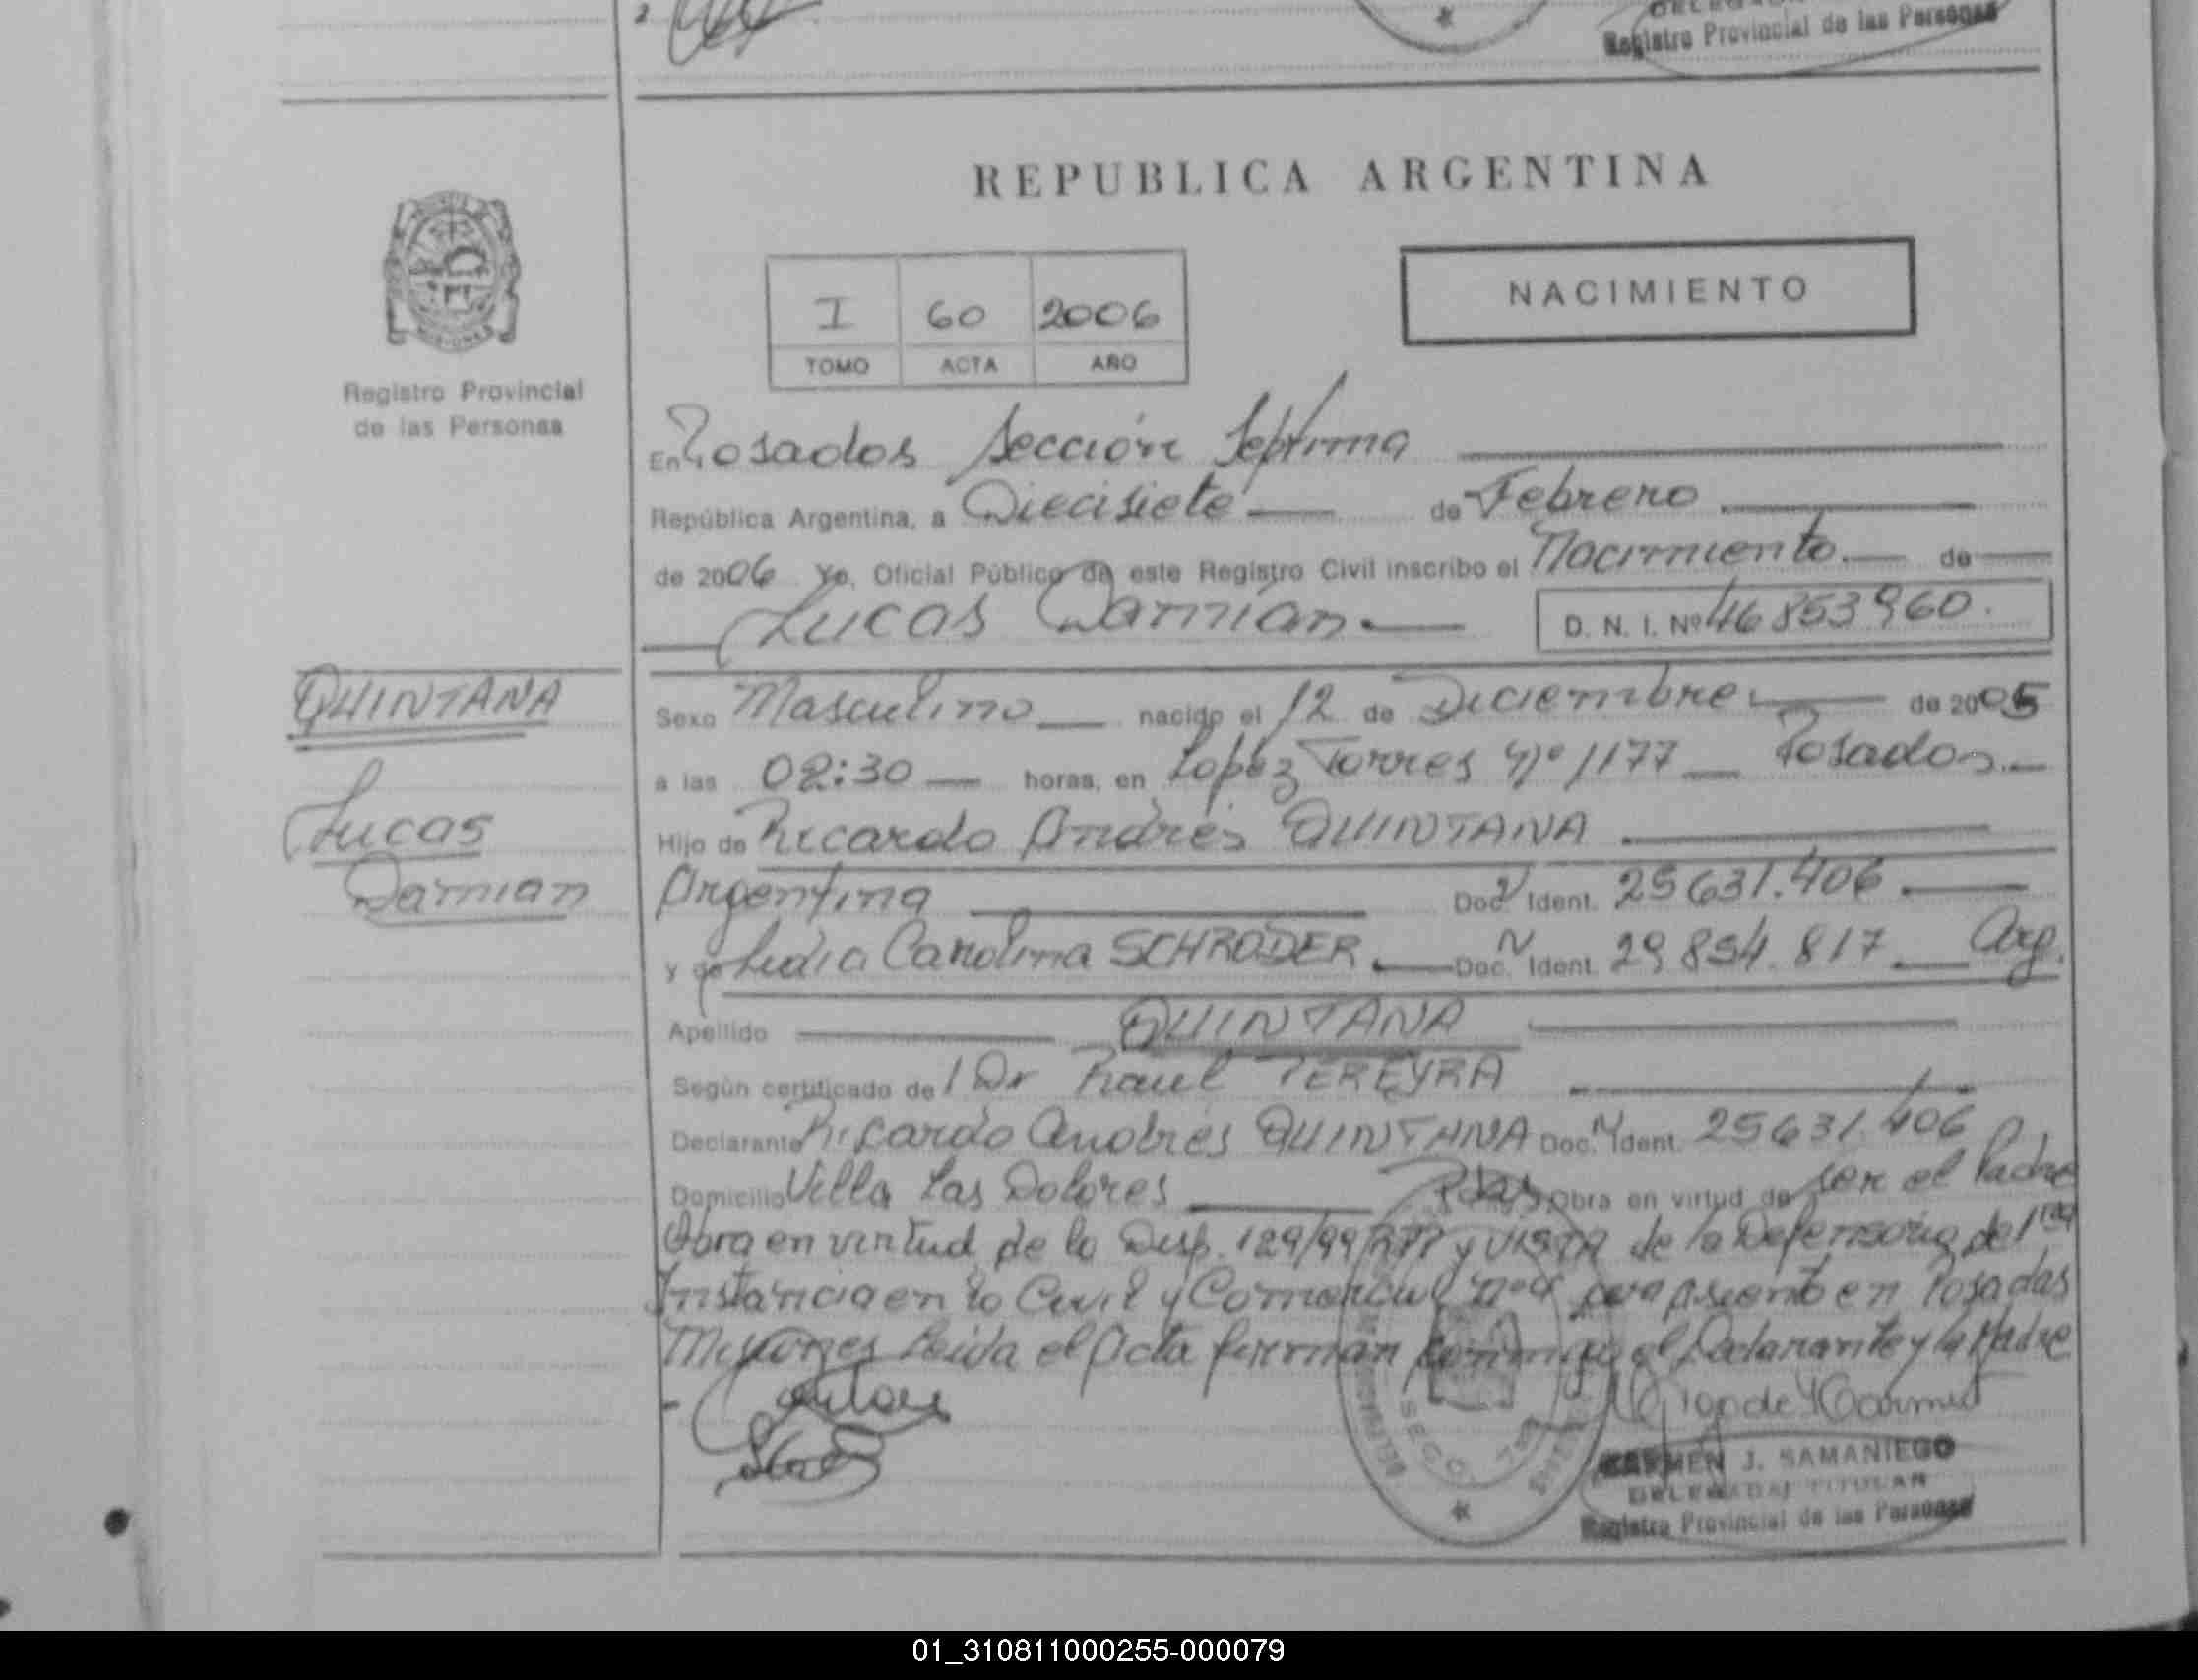 2.
Registro Provincial de las Personas
REPUBLICA ARGENTINA
NACIMIENTO
I 60 2006
TOMO ACTA AÑO
Registro Provincial
de las Personas
En Posadas Sección Septima
República Argentina, a Diecisiete de Febrero
de 2006 Yo, Oficial Público de este Registro Civil inscribo el Nacimiento de
Lucas Damián D. N. I. Nº 46853960.
QUINTANA
Lucas
Damian
Sexo Masculino nacido el 12 de Diciembre de 2005
a las 02:30 horas, en Lopez Torres Nº 1177 Posadas
Hijo de Ricardo Andrés QUINTANA
Argentina Doc. Ident. 25631.406
y de Lidia Carolina SCHRODER Doc. Ident. 29854.817 Arg.
Apellido QUINTANA
Según certificado de l Dr Raul PEREYRA
Declarante Ricardo Andrés QUINTANA Doc. Ident. 25631.406
Domicilio Villa Las Dolores Pdas Obra en virtud de ser el Padre
Obra en virtud de la Disp. 129/99 y VISTA de la Defensoria de 1ra
Instancia en lo Civil y Comercial con asiento en Posadas
Misiones Leida el Acta firman conmigo el Declarante y la Madre
CARMEN J. SAMANIEGO
DELEGADA TITULAR
Registro Provincial de las Personas
01_310811000255-000079